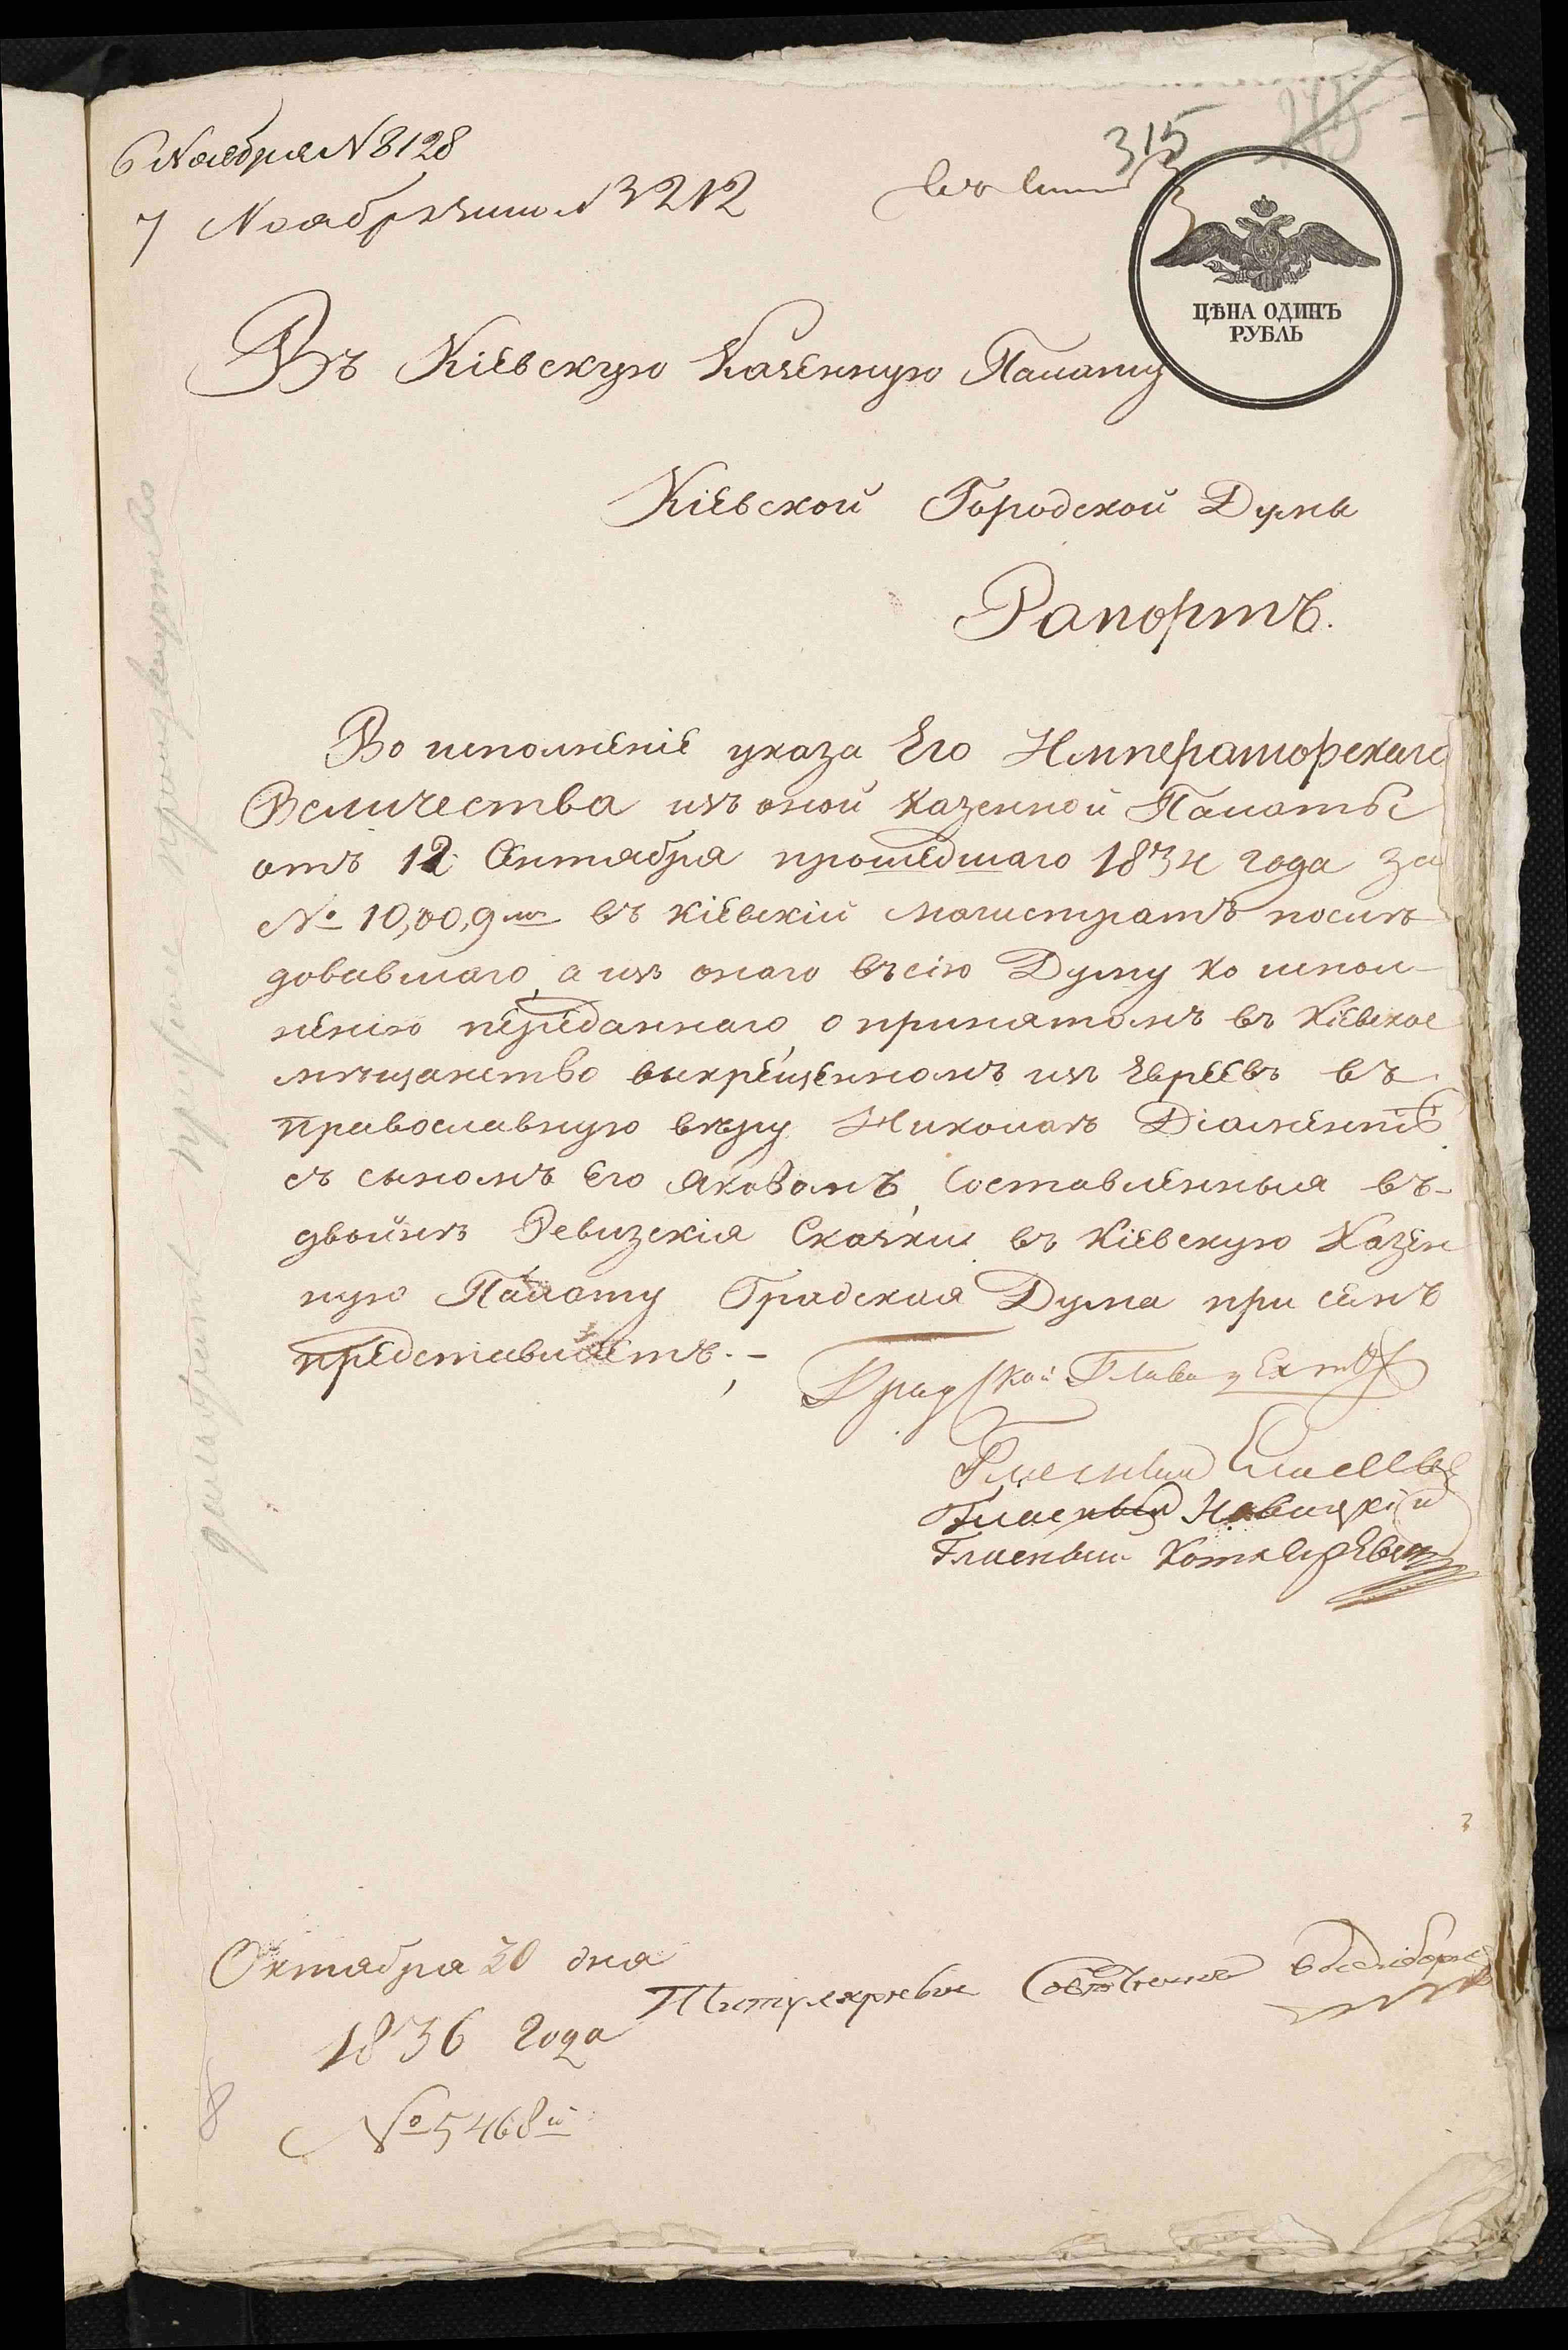 315
6 Ноября N 8128
7 Ноября N 3212
ЦѢНА ОДИНЪ
РУБЛЬ
Въ Кіевскую Казенную Палату
Кіевской Городской Думы
Рапортъ.
Во исполненіе указа Его Императорскаго
Величества изъ оной Казенной Палаты
отъ 12 Октября прошедшаго 1834 года за
№ 10,009мъ въ Кіевскій Магистратъ послѣ-
довавшаго, а изъ онаго въ сію Думу ко испол-
ненію переданнаго, о принятомъ въ Кіевское
мѣщанство выкрещенномъ изъ Евреевъ въ
православную вѣру Николаѣ
съ сыномъ Его Яковомъ, составленныя въ-
двойнѣ Ревизскія Сказки въ Кіевскую Казен
ную Палату Градская Дума при семъ
представляетъ.-
Градской Глава
Гласный Елисеевъ
Гласный Новицкій
Гласный
Октября 30 дня
Титулярный Совѣтникъ
1836 года
№ 5468й